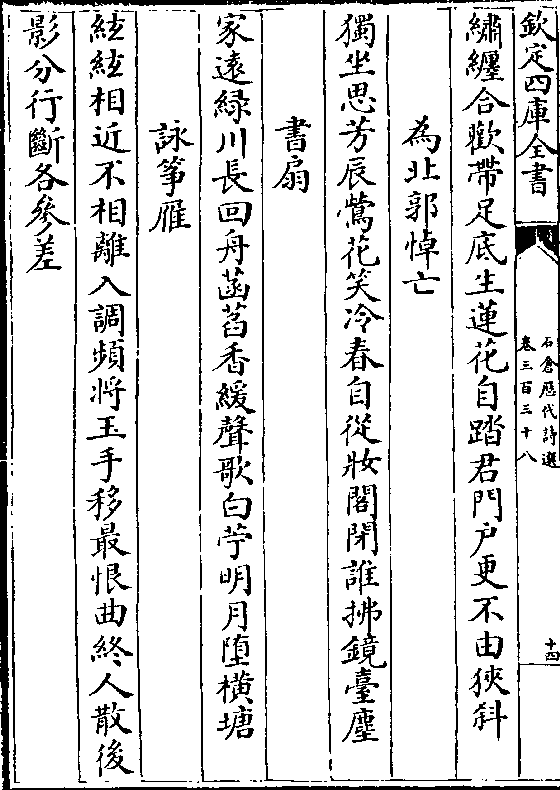 欽定四庫全書
石倉歷代詩選
卷三百三十八
十四
繡纏合歡帶足底生蓮花自踏君門户更不由狹斜
為北郭悼亡
獨坐思芳辰鶯花笑冷春自從妝閣閉誰拂鏡臺塵
書扇
家遠緑川長回舟菡萏香緩聲歌白苧明月墮橫塘
詠箏雁
絃絃相近不相離入調頻将玉手移最恨曲終人散後
影分行斷各參差